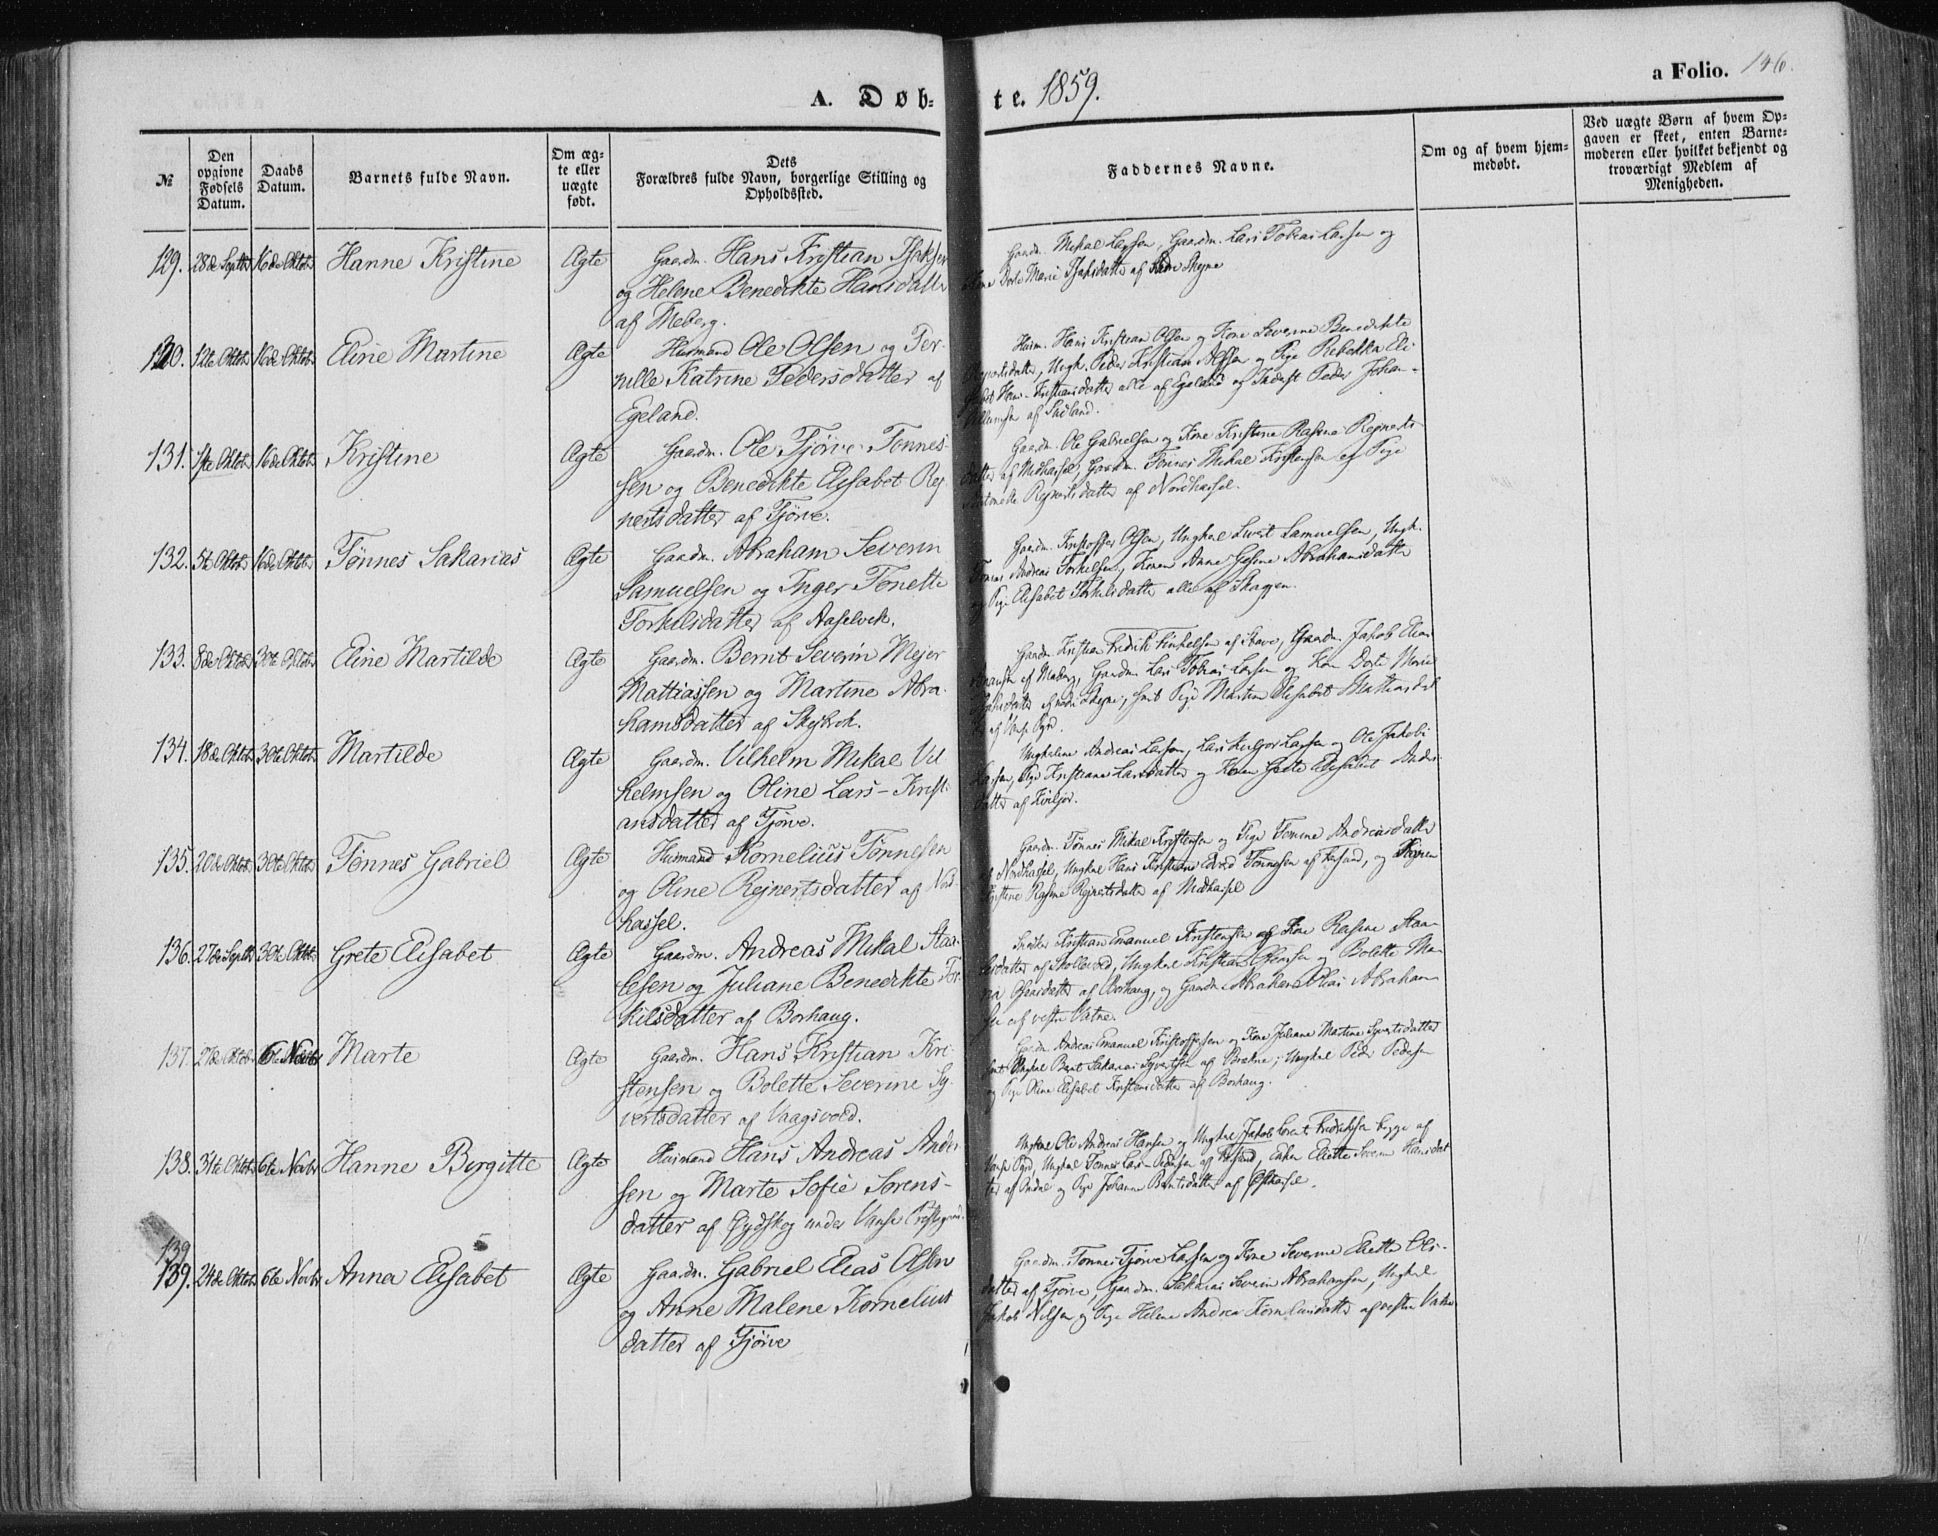 A. Døb-
te. 1859.
a Folio. 146.
№
Den opgivne Fødsels Datum.
Daabs Datum.
Barnets fulde Navn.
Om ægte eller uægte født.
Dets
Forældres fulde Navn, borgerlige Stilling og
Opholdssted.
Faddernes Navne.
Om og af hvem hjemmedøbt.
Ved uægte Børn af hvem Opgaven er skeet, enten Barnemoderen eller hvilket bekjendt og troværdigt Medlem af Menigheden.
129. 28de Septbr 16de Oktobr Hanne Kristine Ægte Gaardm. Hans Kristian
og Helene Benedikte Hansdatter
af Meberg.
Gaardm. Mikal Larsen, Gaardm. Lars Tobias Larsen og
Kone Dorte Marie
130. 12te Oktobr 16de Oktobr Eline Martine Ægte Husmand Ole Olsen og Per-
nille Katrine Pedersdatter af
Egeland.
Husm. Hans Kristian Olsen og Kone Severine Benedikte
131. 1ste Oktobr 16de Oktobr Kristine Ægte Gaardm. Ole Tjørve Tønnes-
sen og Benedikte Elisabet Rej
nertsdatter af Tjørve.
Gaardm. Ole Gabrielsen og Kone Kristine Rasine Rejnerts
datter af Midhassel, Gaardm. Tønnes Mikal Kristensen og Pige
Rejnertsdatter af Nordhassel.
132. 5te Oktobr 16de Oktobr Tønnes Sakarias Ægte Gaardm. Abraham Severin
Samuelsen og Inger Tonette
Torkilsdatter af
Gaardm. Kristoffer Olsen, Ungkarl Sivert Samuelsen, Ungk.
Tønnes Andreas Torkilsen, Konen Anne Abrahamsdatter
og Pige Elisabet Torkilsdatter alle af Skagen.
133. 8de Oktobr 30te Oktobr Eline Martilde Ægte Gaardm. Bernt Severin Mejer
Mattiassen og Martine Abra-
hamsdatter af
Gaardm. Kristian Fredrik af Stave, Gaardm. Jakob Elias
af Meberg, Gaardm. Lars Tobias Larsen og Kone Dorte Marie
af Vanse Pgd.
134. 18de Oktobr 30te Oktobr Martilde Ægte Gaardm. Vilhelm Mikal Vil
helmsen og Oline Lars-Kristi
ansdatter af Tjørve.
Ungkarlene Andreas Larsen, Lars Larsen og Ole Jakob
Larsen, Pige Kristiane Larsdatter og Konen Grete Elisabet Anders
datter af
135. 20de Oktobr 30te Oktobr Tønnes Gabriel Ægte Husmand Kornelius Tønnesen
og Oline Rejnertsdatter af Nord-
hassel.
Gaardm. Tønnes Mikal Kristensen og Pige Tomine Andreasdatter
af Nordhassel, Ungkarl Hans Kristian Edvard Tønnesen af Farsund, og Konen
Kristine Rasine Rejnertsdatter af Midhassel
136. 27de Septbr 30te Oktobr Grete Elisabet Ægte Gaardm. Andreas Mikal Staa-
lesen og Juliane Benedikte Tor-
kilsdatter af Borhaug.
Kristian Emanuel Kristensen og Kone Rasine Staa-
lesdatter af Skollevold, Ungkarl Kristian og Bolette Ma-
af Borhaug, og Gaardm. Abraham Elias Abraham-
sen af vestre Vatne.
137. 27de Oktobr 6te Novbr Marte Ægte Gaardm. Hans Kristian Kri-
stensen og Bolette Severine Sy-
vertsdatter af Vaagsvold.
Gaardm. Andreas Emanuel Kristoffersen og Kone Juliane Martine Syvertsdatter
samt Ungkarl Bernt Sakarias Syvertsen af Brekne, Ungkarl Peder Pedersen
og Pige Oline Elisabet Kristensdatter af Borhaug.
138. 31te Oktobr 6te Novbr Hanne Birgitte Ægte Husmand Hans Andreas Ander
sen og Marte Sofie Sørens-
datter af under Vanse Prestegaard.
Ungkarl Ole Andreas Hansen og Ungkarl Jakob Lorents Fredriksen begge af
Vanse Pgd, Ungkarl Tønnes Lars Pedersen af Farsund, Enken Eliette Severine Hansdat
ter af og Pige Johanne Berntsdatter af Østhassel.
139
139. 24de Oktobr 6te Novbr Anna Elisabet Ægte Gaardm. Gabriel Elias Olsen
og Anne Malene Kornelius
datter af Tjørve
Gaardm. Tønnes Tjørve Larsen og Kone Severine Eliette Ols-
datter af Tjørve, Gaardm. Sakarias Severin Abrahamsen, Ungkarl
Jakob Nilsen og Pige Helene Andrea Korneliusdatter af vestre Vatne